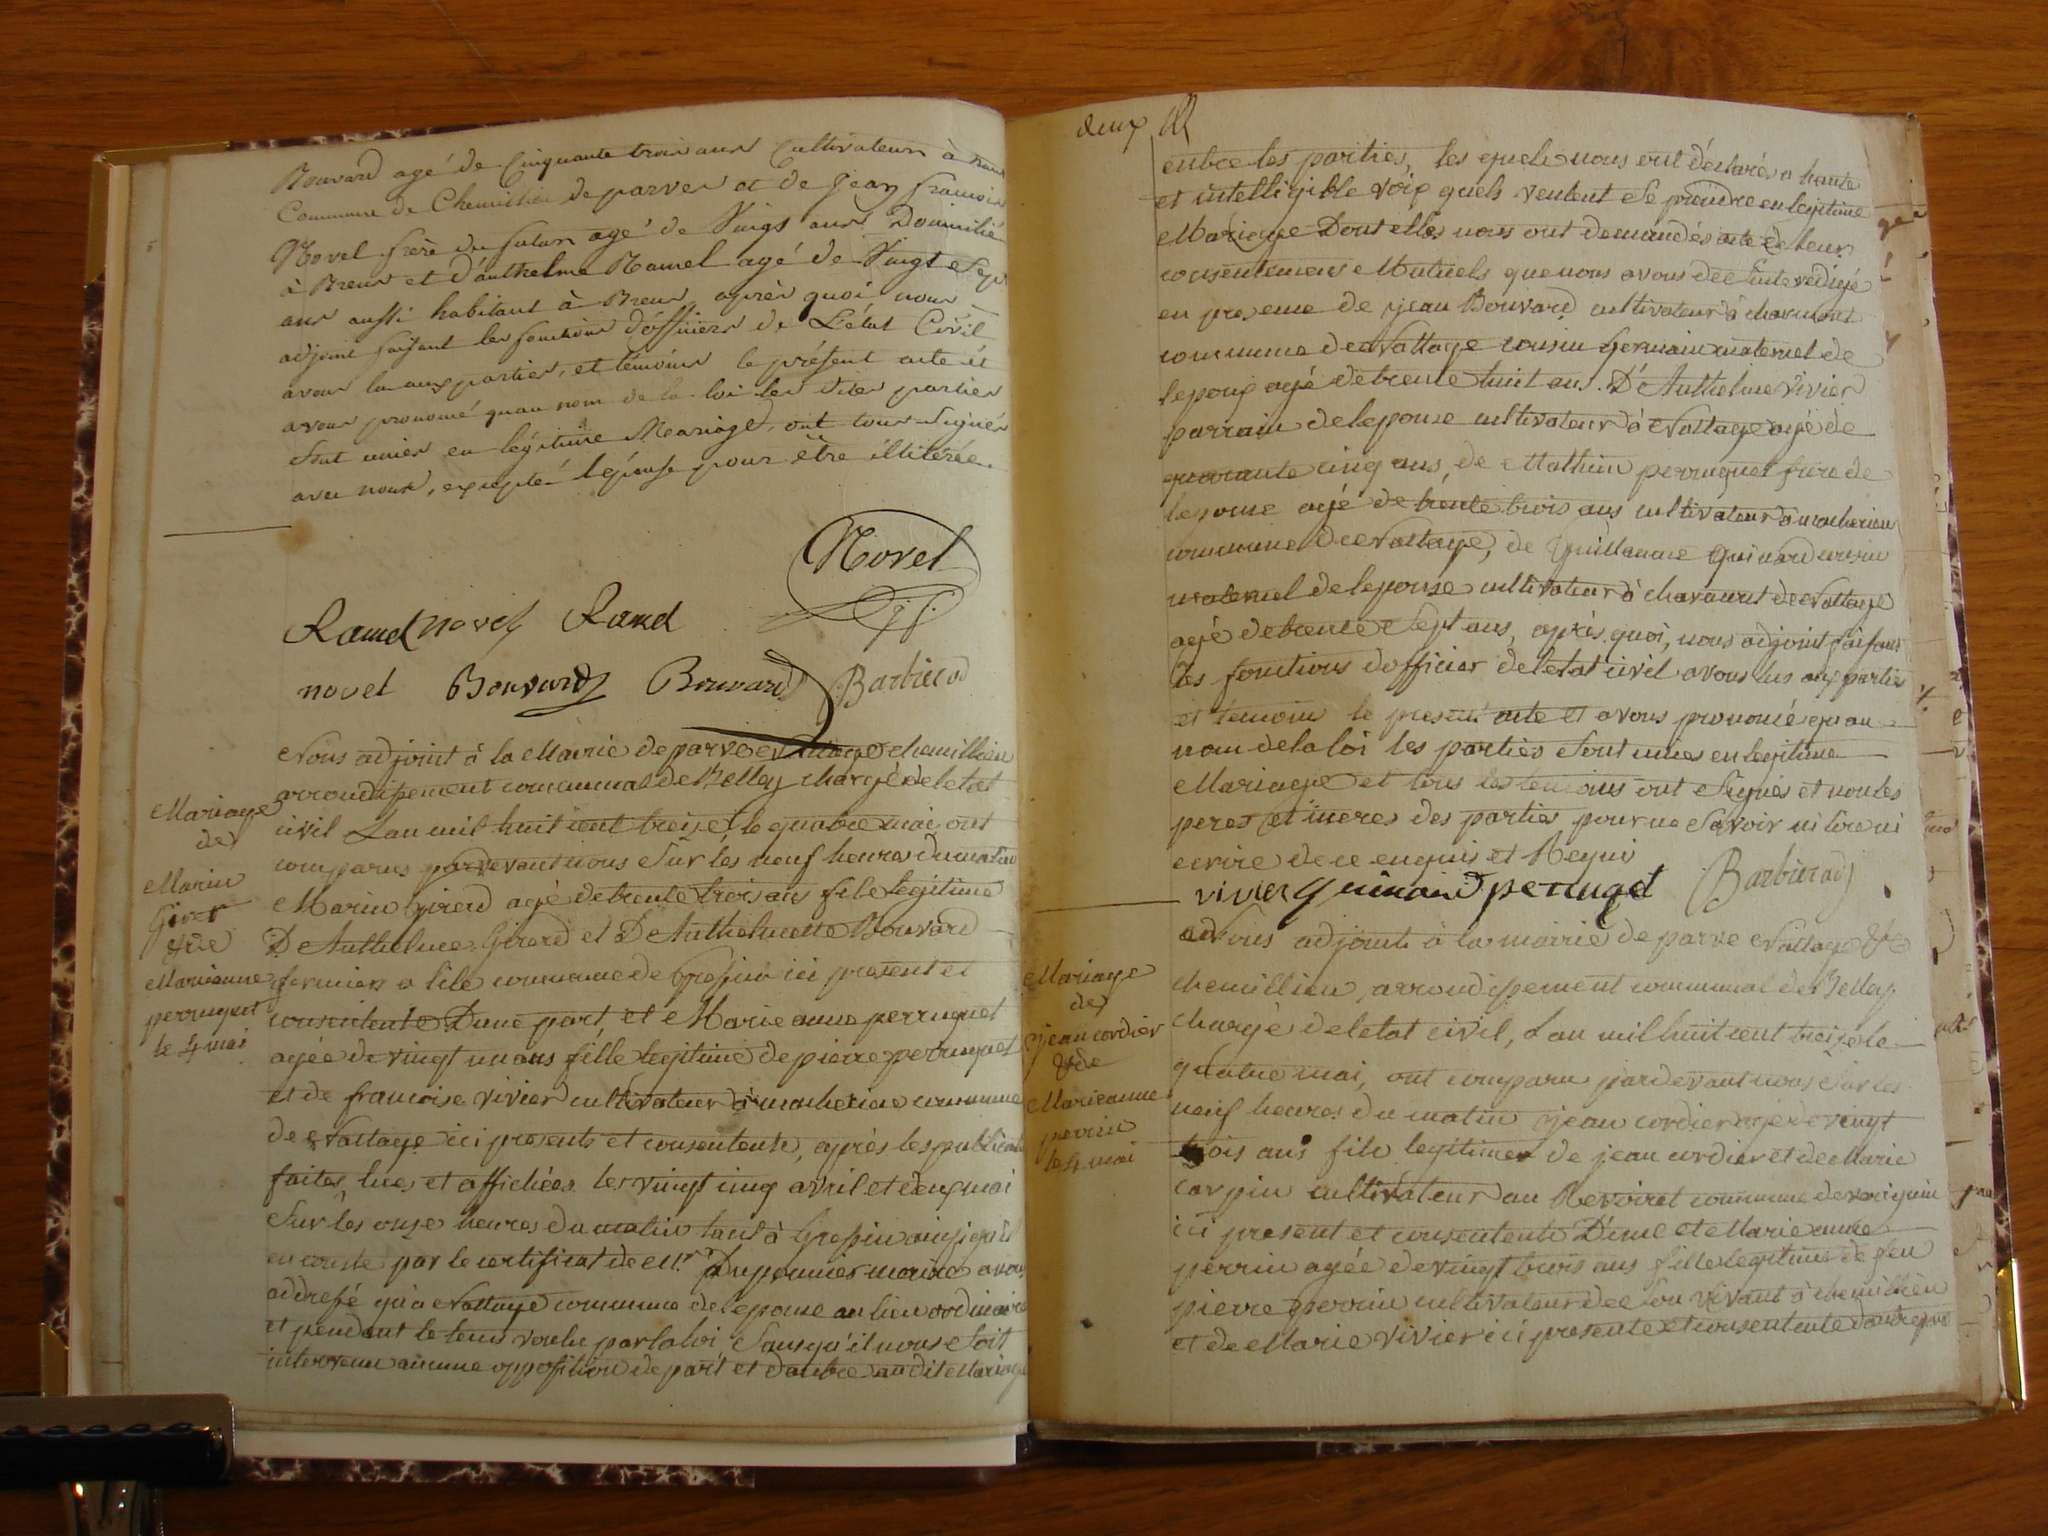 Bouvard agé de Cinquante trois ans Cultivateur à
Commune de Chemillieu de parves et de Jean francois
Novel frère du futur agé de Vingt ans Domicilié
à Brens et d'anthelme Ramel agé de Vingt Sept
ans aussi habitant à Brens, après quoi, nous
adjoint faisant les fonctions d'officier de L'état Civil
avons lu aux parties, et témoins le présent acte et
avons prononcé quau nom de la loi les dites parties
Sont unies en légitime Mariage, ont tous Signés
avec nous, excepté l'épouse pour être illitérée.
Novel
Ramel novel Ramel
novel Bouvard Bouvard Barbier adj
Mariage
de
Marin
Girer
& de
Marieanne
perruquet
le 4 mai
Nous adjoint à la Mairie de parve Nattage chemillieu
arrondissement communal de Belley chargé de letat
civil Lan mil huit cent treize, le quatre mai ont
comparus pardevant nous Sur les neuf heures du matin
Marin girerd agé de trente trois ans fils legitime
De Anthelme Girard et De Anthelmette Bouvard
fermier a lile commune de Gresin ici present et
consentente Dune part, et Marie anne perruquet
agée de vingt un ans fille legitime de pierre perruquet
et de francoise vivier cultivateur à macherieu commune
de Nattage ici presents et consentents, après les publications
faites, lues et affichées les vingt cinq avril et deux mai
Sur les onze heures du matin tant à Gresin ainsi quil
en conste par le certificat de Mr. Duponnier maire a nous
addressé qu'a Nattage commune de lepouse au lieu ordinaire
et pendant le tems voulu par la loi Sans qu'il nous Soit
intervenu aucune opposition de part et dautre audit Mariage
deux
entre les parties, les quels nous ont déclarés a haute
et intelligible voix quels veulent Se prendre en legitime
Mariage Dont elles nous ont demandés acte de leur
consentement Mutuels que nous avons de Suite redigé
en presence de jean Bouvard cultivateur à charmont
commune de Nattage cousin germain maternel de
lepoux agé de trente huit ans. D'Anthelme Vivier
parrain de lepouse cultivateur à Nattage agé de
quarante cinq ans, de Mathieu perruquet frère de
lepouse agé de trente trois ans cultivateur a macherieu
commune de Nattage, de Guillaume Guinard cousin
maternel de lepouse cultivateur à chavanet de Nattage
agé de trente Sept ans, après quoi, nous adjoint faisant
les fonctions dofficier de letat civil avons lus aux parties
et temoins le present acte et avons prononcé quau
nom de la loi les parties Sont unies en legitime
Mariage et tous les temoins ont Signés et non les
peres et meres des parties pour ne Savoir ni lire ni
ecrire de ce enquis et Requis
vivier guinard perruquet Barbier adj
Mariage
de
jean cordier
& de
Marieanne
perrin
le 4 mai
Nous adjoint à la mairie de parve Nattage &
chemillieu, arrondissement communal de Belley
chargé de letat civil, Lan mil huit cent treize le
quatre mai, ont comparu pardevant nous Sur les
neuf heures du matin jean cordier agé de vingt
trois ans fils legitime de jean cordier et de Marie
carpin cultivateur au Revoiret commune de
ici present et consentente D'une et Marie anne
perrin agée de vingt trois ans fille legitime de feu
pierre perrin cultivateur de Son vivant à chemillieu
et de Marie vivier ici presente et consentente dautre part